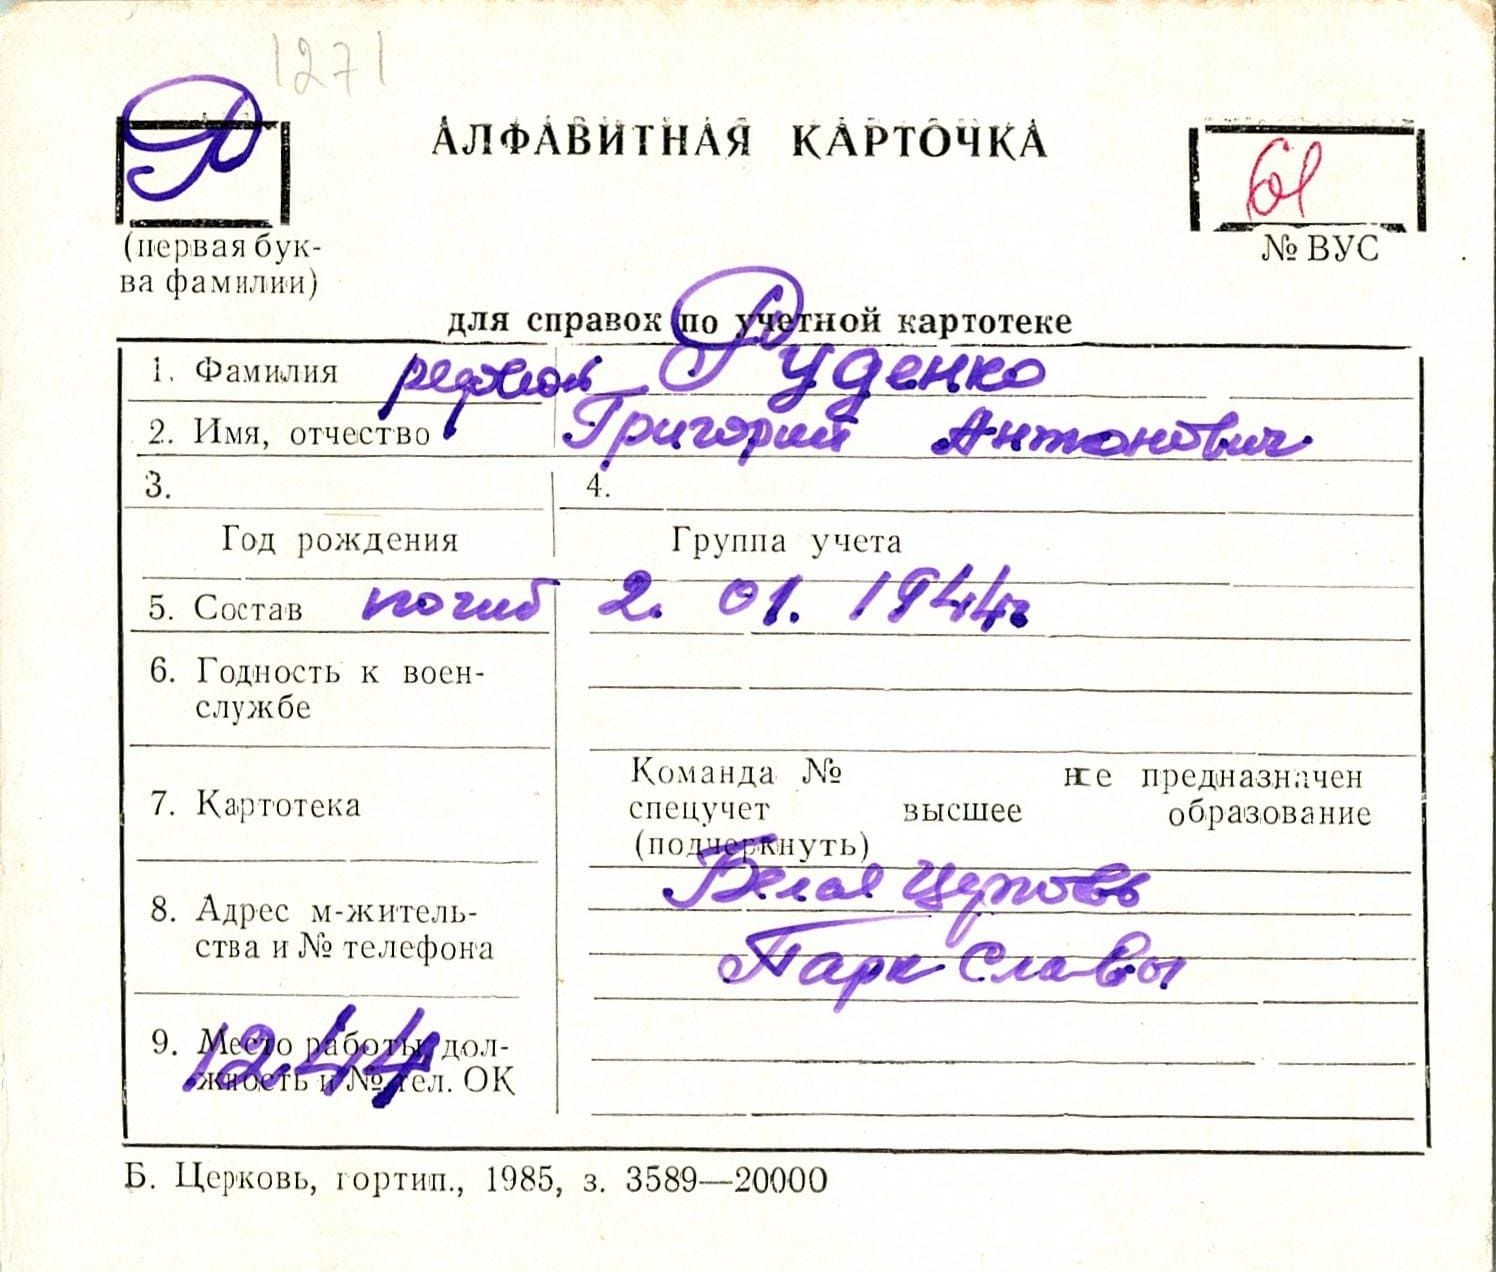 1271
Р
АЛФАВИТНАЯ КАРТОЧКА
61
(первая бук-
ва фамилии)
№ ВУС
для справок по учетной картотеке
1. Фамилия рядовой Руденко
2. Имя, отчество Григорий Антонович
3. 4.
Год рождения Группа учета
5. Состав погиб 2. 01. 1944г
6. Годность к воен-
службе
Команда № не предназначен
7. Картотека спецучет высшее образование
(подчеркнуть)
Белая Церковь
8. Адрес м-житель-
ства и № телефона Парк Славы
9. Место работы, дол-
жность и № тел. ОК
1244
Б. Церковь, гортип., 1985, з. 3589—20000